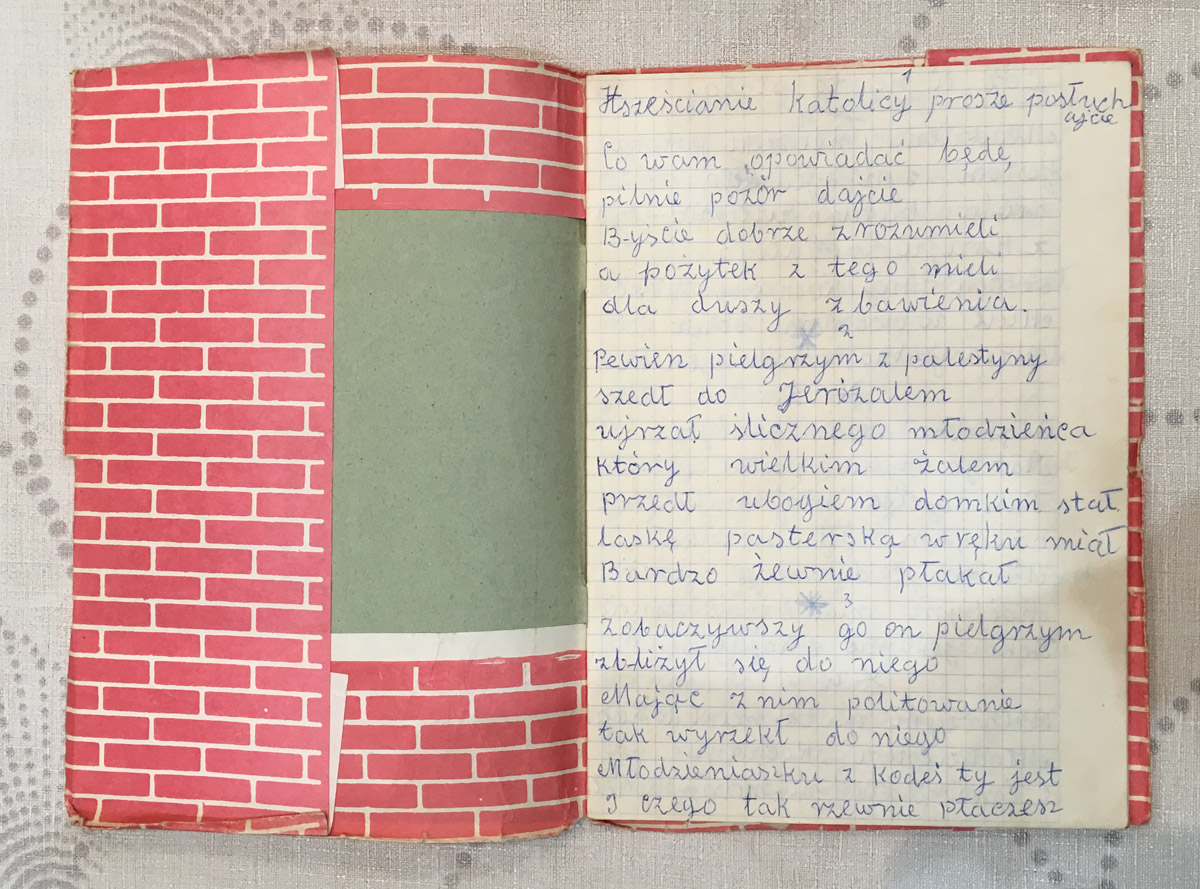 1
Hsześcianie katolicy prosze posłuch
ajcie
Co wam opowiadać będę,
pilnie pozór dajcie
B-yście dobrze zrozumieli
a pożytek z tego mieli
dla duszy zbawienia.
2
Pewien pielgrzym z palestyny
szedł do Jerozalem
ujrzał slicznego młodzieńca
który wielkim żalem
przedł ubogiem domkim stał
laskę pasterską wręku miał
Bardzo żewnie płakał
3
Zobaczywszy go on pielgrzym
zbliżył się do niego
Mając znim politowanie
tak wyrzekł do niego
Młodzieniaszku z kodeś ty jest
I czego tak rzewnie płaczesz